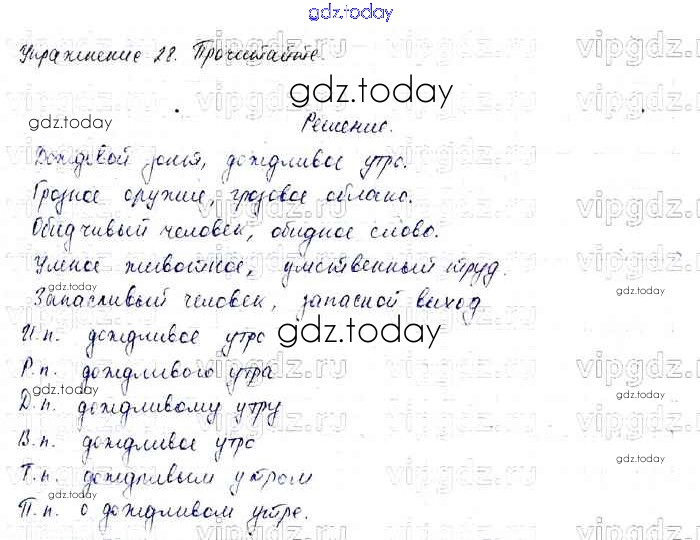 gdz.today
Упражнение 28. Прочитайте.
vipgdz.ru
gdz.today
gdz.today
Решение.
Дождевой зонт, дождливое утро.
Грозное оружие, грозовое облако.
Обидчивый человек, обидное слово.
Умное животное, умственный труд.
Запасливый человек, запасной выход
И.п. дождливое утро
gdz.today
Р.п. дождливого утра
Д.п. дождливому утру
В.п. дождливое утро
Т.п. дождливым утром
П.п. о дождливом утре.
gdz.today
gdz.today
gdz.today
gdz.today
gdz.today